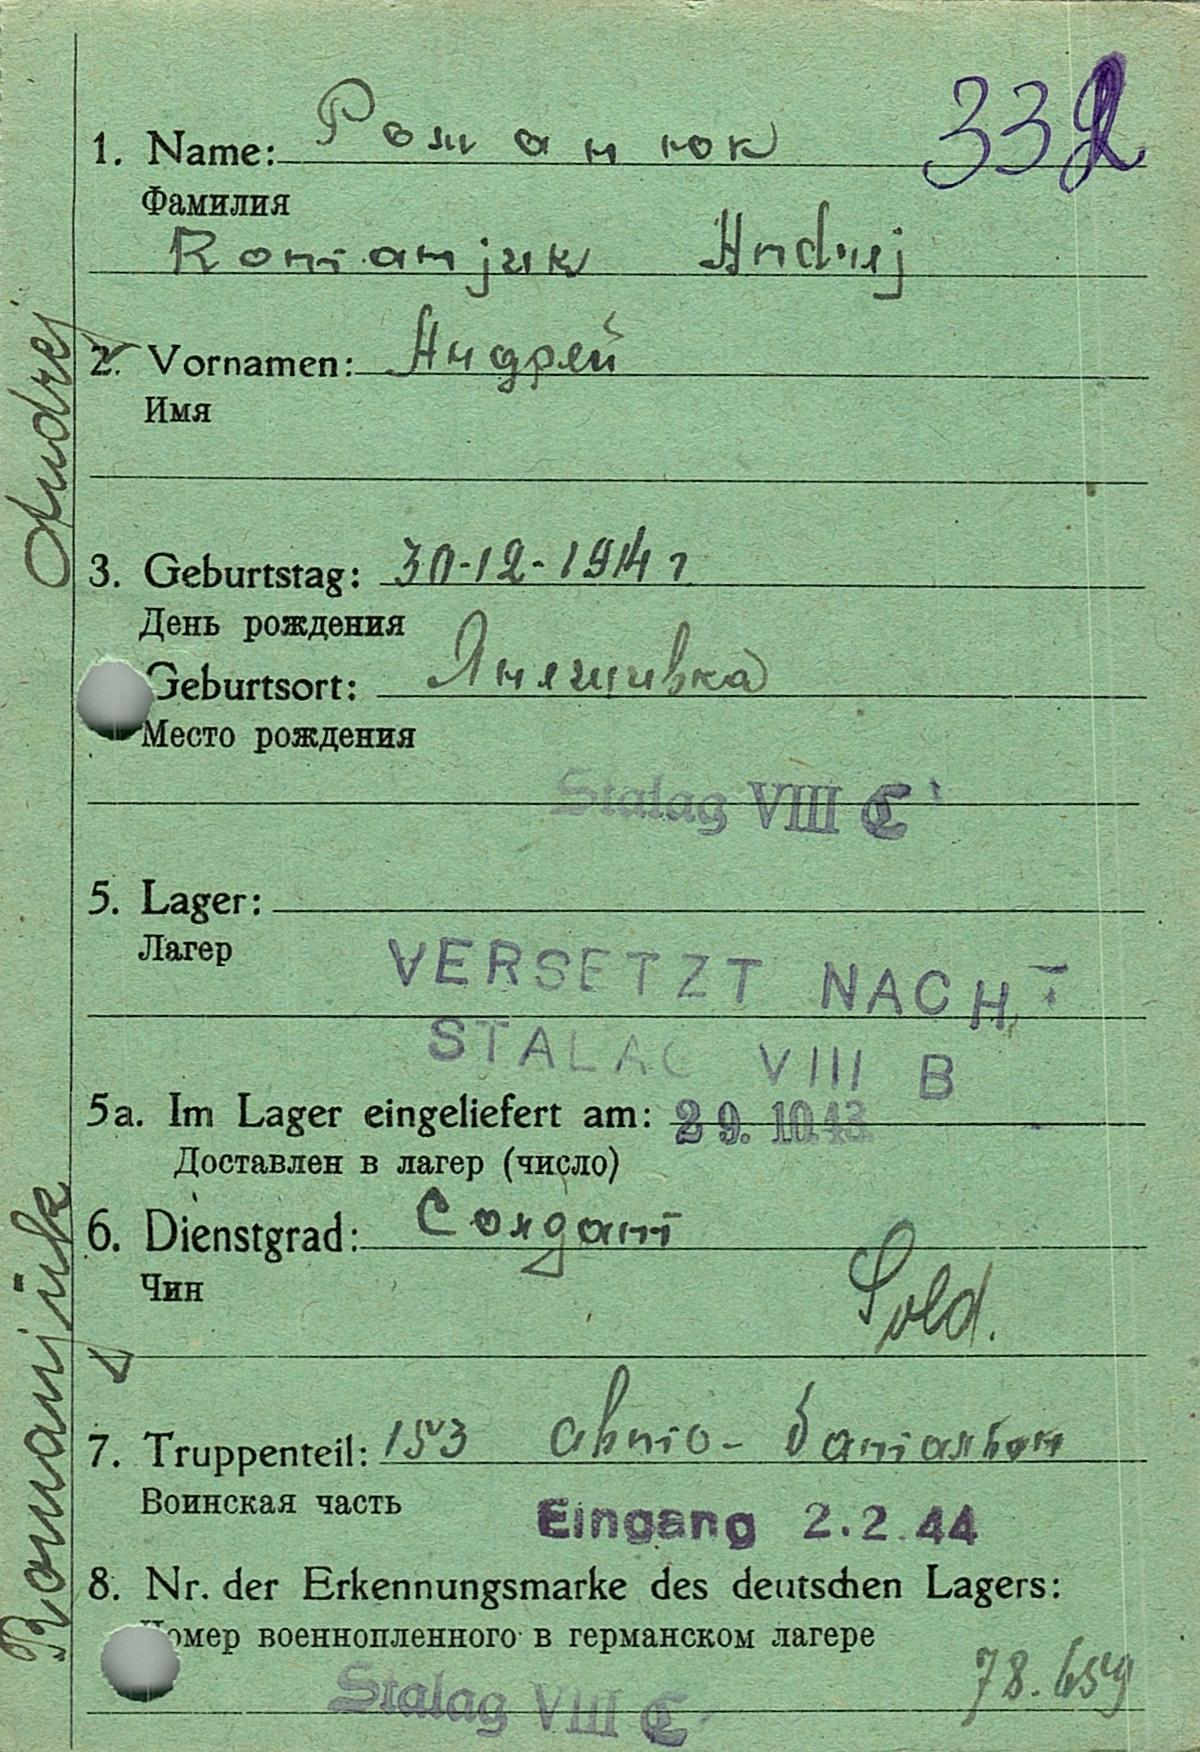 332
1. Name: Романюк
Фамилия
Romanjuk Andrej
2. Vornamen: Андрей
Имя
3. Geburtstag: 30-12-1914 г
День рождения
Geburtsort:
Место рождения
Stalag VIII C
5. Lager:
Лагер
VERSETZT NACH
STALAG VIII B
5a. Im Lager eingeliefert am: 29. 10 43
Доставлен в лагер (число)
6. Dienstgrad: Солдат
Чин
Sold.
7. Truppenteil: 153 авто-батальон
Воинская часть
Eingang 2.2.44
8. Nr. der Erkennungsmarke des deutschen Lagers:
Номер военнопленного в германском лагере
78.659
Stalag VIII C
Romanjuk Andrej